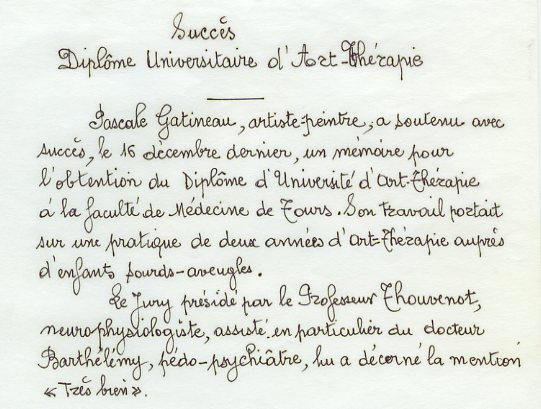 Succès
Diplôme Universitaire d'Art-Thérapie
Pascale Gatineau, artiste-peintre, a soutenu avec
succès, le 16 décembre dernier, un mémoire pour
l'obtention du Diplôme d'Université d'Art-Thérapie
à la faculté de Médecine de Tours. Son travail portait
sur une pratique de deux années d'Art-Thérapie auprès
d'enfants sourds-aveugles.
Le Jury présidé par le Professeur Thouvenot,
neurophysiologiste, assisté en particulier du docteur
Barthélémy, pédo-psychiâtre, lui a décerné la mention
« Très bien ».